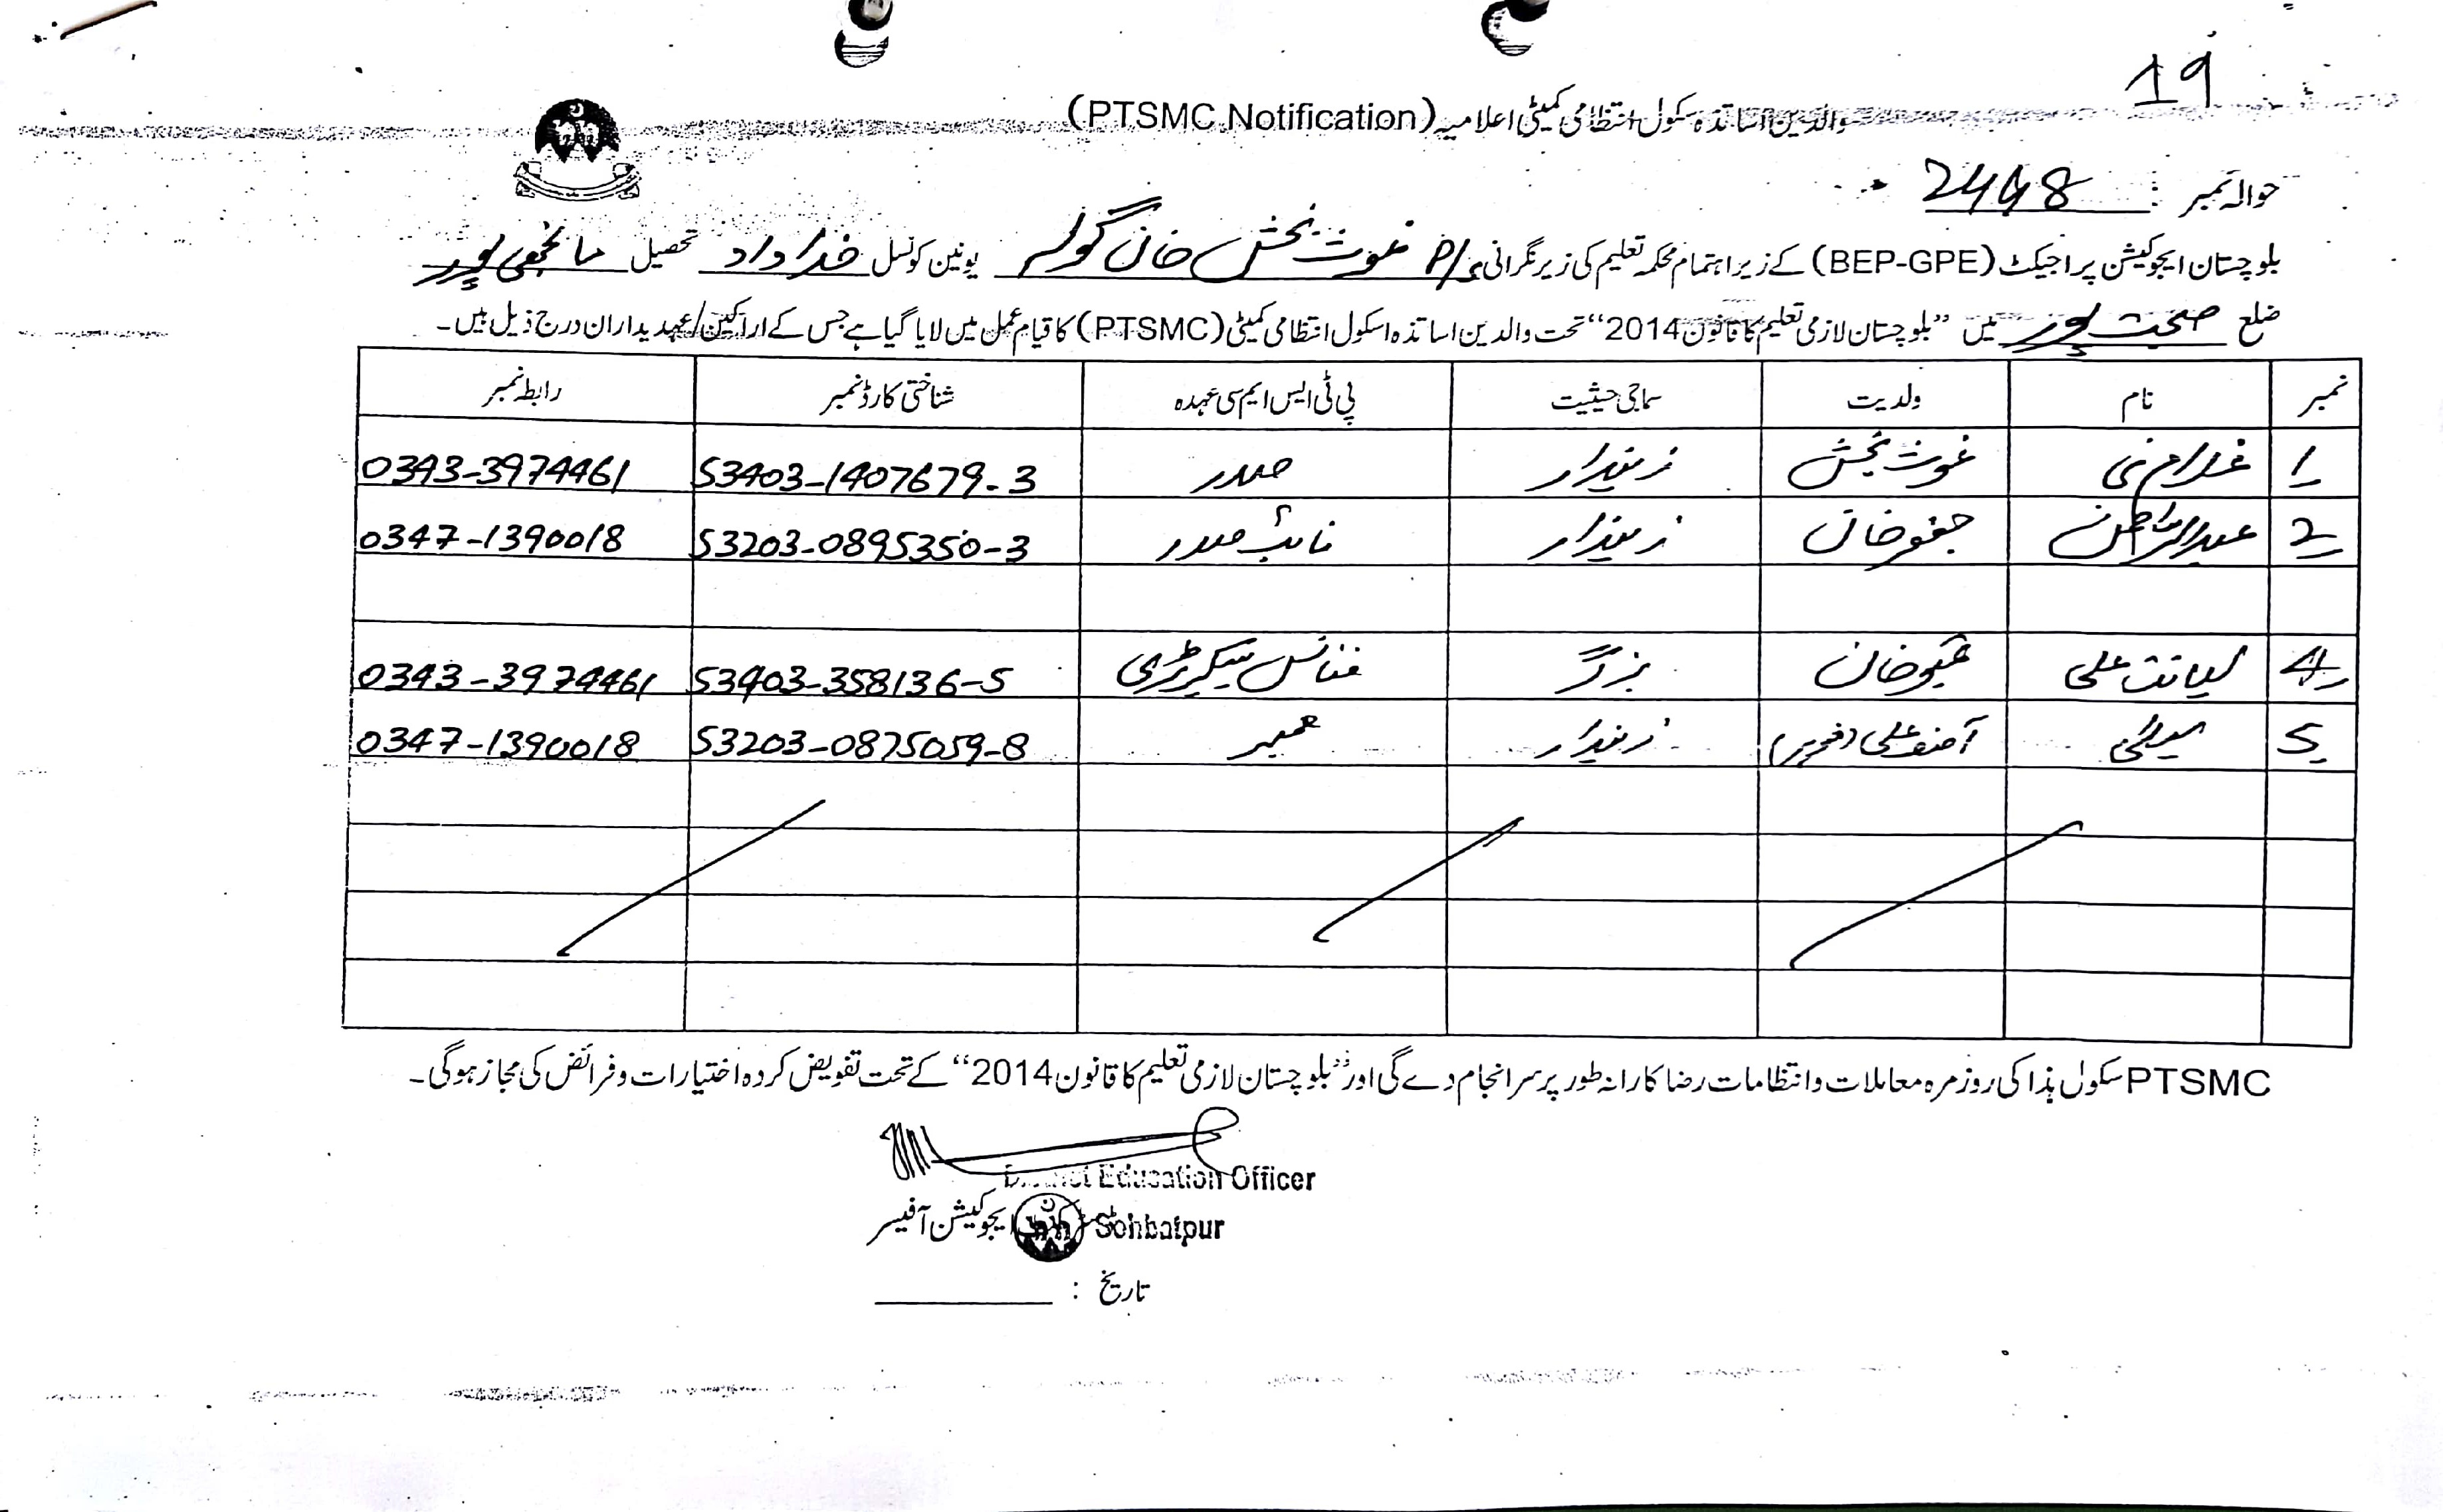 19
والدین اساتذہ سکول انتظامی کمیٹی اعلامیہ (PTSMC Notification)
حوالہ نمبر : 2448
بلوچستان ایجوکیشن پراجیکٹ (BEP-GPE) کے زیر اہتمام محکمہ تعلیم کی زیر نگرانی غوث بخش خان گولہ یونین کونسل خداداد تحصیل مانجھی پور
ضلع صحبت پور میں ”بلوچستان لازمی تعلیم کا قانون 2014“ تحت والدین اساتذہ اسکول انتظامی کمیٹی (PTSMC) کا قیام عمل میں لایا گیا ہے جس کے اراکین/عہدیداران درج ذیل ہیں۔
نمبر نام ولدیت سماجی حیثیت پی ٹی ایس ایم سی عہدہ شناختی کارڈ نمبر رابطہ نمبر
1 غلام نبی غوث بخش زمیندار صدر 53403-1407679-3 0343-3974461
2 عبدالرحمن جعفر خان زمیندار نائب صدر 53203-0895350-3 0347-1390018
4 لیاقت علی خان بزگر فنانس سیکریٹری 53403-358136-5 0343-3974461
5 آصف علی زمیندار ممبر 53203-0875059-8 0347-1390018
PTSMC سکول ہذا کی روزمرہ معاملات و انتظامات رضا کارانہ طور پر سرانجام دے گی اور ”بلوچستان لازمی تعلیم کا قانون 2014“ کے تحت تفویض کردہ اختیارات و فرائض کی مجاز ہوگی۔
District Education Officer
ایجوکیشن آفیسر
Sohbatpur
تاریخ :